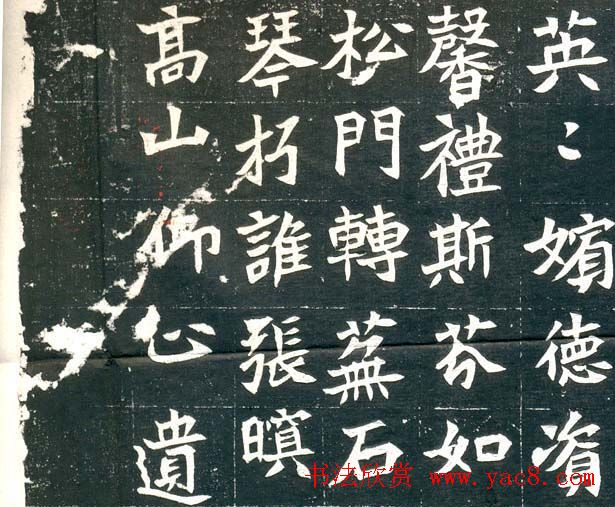 英〻嬪徳資
馨禮斯芬如
松門轉蕪石
琴朽誰張暝
髙山仰止遺
书法欣赏 www.yac8.com